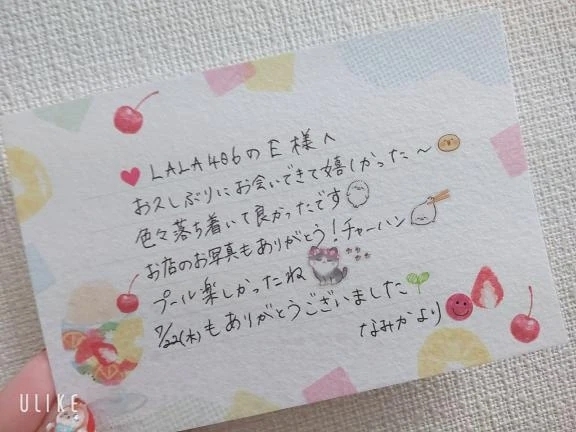 LALA486のE様へ
お久しぶりにお会いできて嬉しかった〜
色々落ち着いて良かったです
お店のお写真もありがとう!チャーハン
プール楽しかったね
7/22(木)もありがとうございました
なみかより
ULIKE